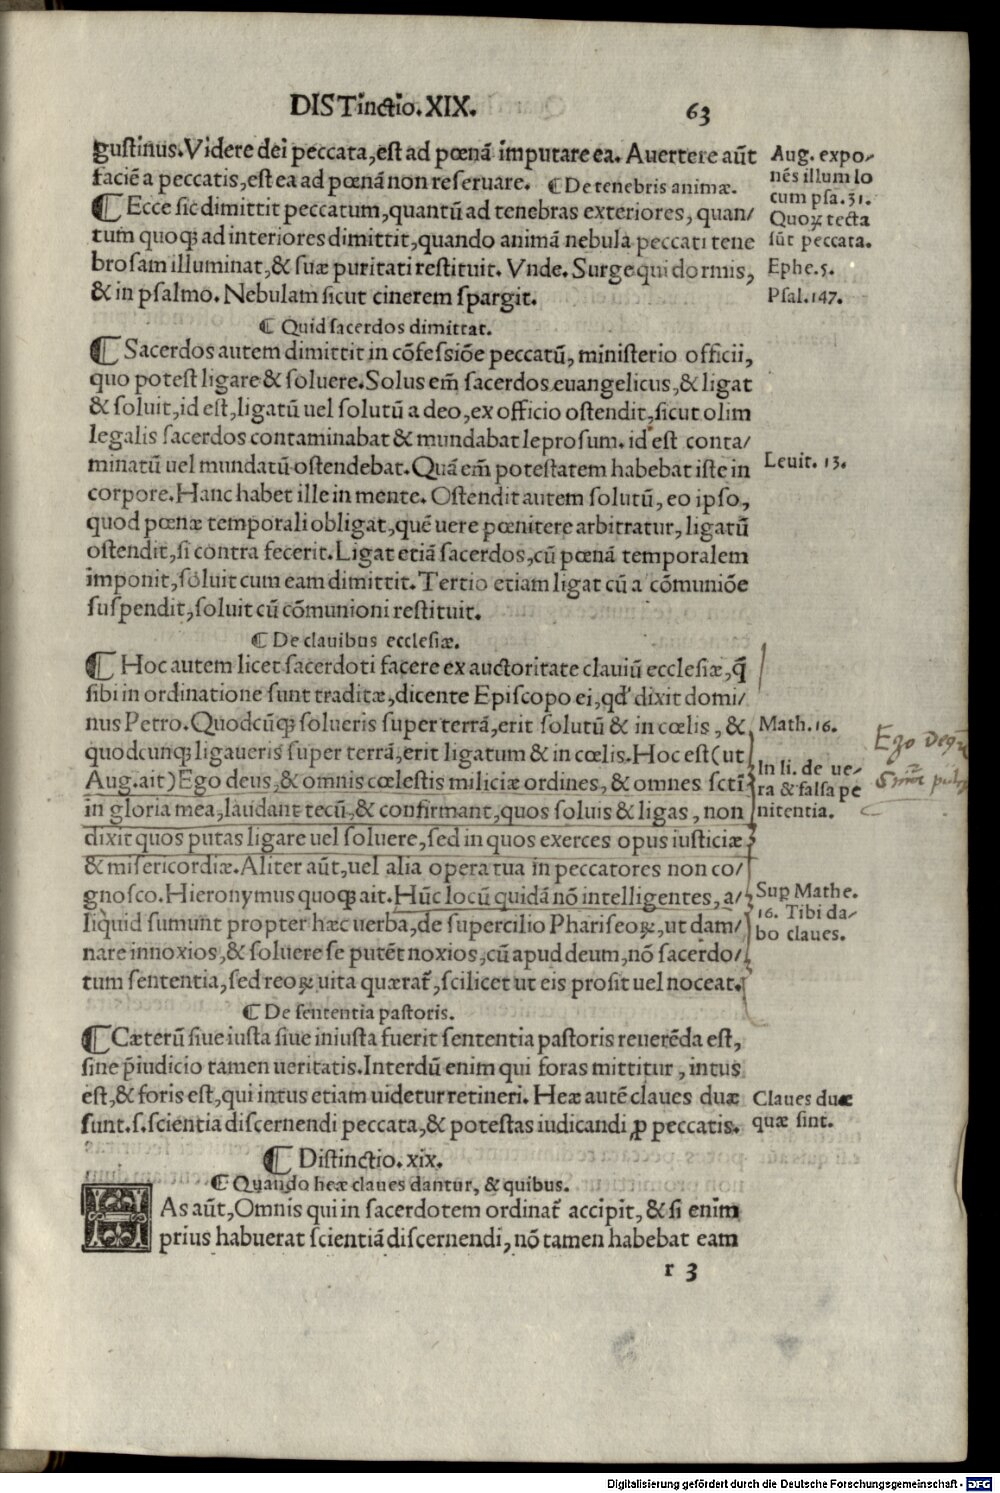 DISTinctio.XIX. 63
gustinus.Videre dei peccata,est ad pœnã imputare ea. Auertere aũt
faciẽ a peccatis,est ea ad pœnã non reseruare. ¶ De tenebris animæ.
Aug. expo-
nẽs illum lo
cum psa.31.
Quoꝝ tecta
sũt peccata.
¶ Ecce sic dimittit peccatum,quantũ ad tenebras exteriores, quan/
tum quoqꝫ ad interiores dimittit,quando animã nebula peccati tene
brosam illuminat,& suæ puritati restituit. Vnde. Surge qui dormis,
Ephe.5.
& in psalmo. Nebulam sicut cinerem spargit.
Psal.147.
¶ Quid sacerdos dimittat.
¶ Sacerdos autem dimittit in cõfessiõe peccatũ, ministerio officii,
quo potest ligare & soluere.Solus em̃ sacerdos euangelicus,& ligat
& soluit,id est,ligatũ uel solutũ a deo,ex officio ostendit,sicut olim
legalis sacerdos contaminabat & mundabat leprosum. id est conta/
minatũ uel mundatũ ostendebat. Quã em̃ potestatem habebat iste in
Leuit. 13.
corpore.Hanc habet ille in mente. Ostendit autem solutũ, eo ipso,
quod pœnæ temporali obligat,quẽ uere pœnitere arbitratur, ligatũ
ostendit,si contra fecerit.Ligat etiã sacerdos,cũ pœnã temporalem
imponit,soluit cum eam dimittit.Tertio etiam ligat cũ a cõmuniõe
suspendit,soluit cũ cõmunioni restituit.
¶ De clauibus ecclesiæ.
¶ Hoc autem licet sacerdoti facere ex auctoritate clauiũ ecclesiæ,q̃
sibi in ordinatione sunt traditæ,dicente Episcopo ei,qd' dixit domi/
nus Petro.Quodcũqꝫ solueris super terrã,erit solutũ & in cœlis, &
Math.16.
quodcunqꝫ ligaueris super terrã,erit ligatum & in cœlis.Hoc est(ut
Aug.ait)Ego deus,& omnis cœlestis miliciæ ordines,& omnes scti
in gloria mea,laudant tecũ,& confirmant,quos soluis & ligas, non
In li. de ue-
ra & falsa pe
nitentia.
Ego
dixit quos putas ligare uel soluere,sed in quos exerces opus iusticiæ
& misericordiæ.Aliter aũt,uel alia opera tua in peccatores non co/
gnosco.Hieronymus quoqꝫ ait. Hũc locũ quidã nõ intelligentes, a/
liquid sumunt propter hæc uerba,de supercilio Phariseoꝝ,ut dam/
Sup Mathe.
16. Tibi da-
bo claues.
nare innoxios,& soluere se putẽt noxios,cũ apud deum,nõ sacerdo/
tum sententia,sed reoꝝ uita quærat᷑,scilicet ut eis prosit uel noceat.
¶ De sententia pastoris.
¶ Cæterũ siue iusta siue iniusta fuerit sententia pastoris reuerẽda est,
sine p̃iudicio tamen ueritatis.Interdũ enim qui foras mittitur, intus
est,& foris est,qui intus etiam uidetur retineri. Heæ autẽ claues duæ
sunt.s.scientia discernendi peccata,& potestas iudicandi ꝑ peccatis.
Claues duæ
quæ sint.
¶ Distinctio.xix.
¶ Quando heæ claues dantur, & quibus.
HAs aũt,Omnis qui in sacerdotem ordinat᷑ accipit, & si enim
prius habuerat scientiã discernendi, nõ tamen habebat eam
r 3
Digitalisierung gefördert durch die Deutsche Forschungsgemeinschaft - DFG